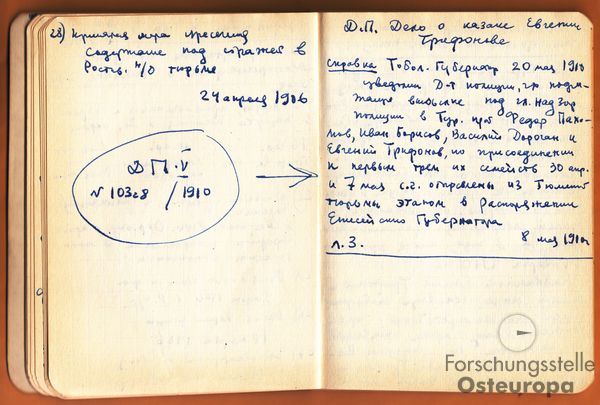 28) Принята мера пресечения
Содержание под стражей в
Ростов. н/Д тюрьме
24 апреля 1906
ДП. V
№ 103 /1910
Д.П. Дело о казаке Евгении
Трифонове
Справка Тобол. Губернатор 20 мая 1910
уведомил Д-т полиции,
высылке под гл. надзор
полиции в Тур. край Федор
Иван Борисов, Василий Дорогань и
Евгений Трифонов, по присоединении
к первым трем их семейств 30 апр.
и 7 мая с.г. отправлены из Тюменск.
тюрьмы этапом в распоряжение
Енисейского Губернатора
л. 3.
8 мая 1910г
Forschungsstelle
Osteuropa